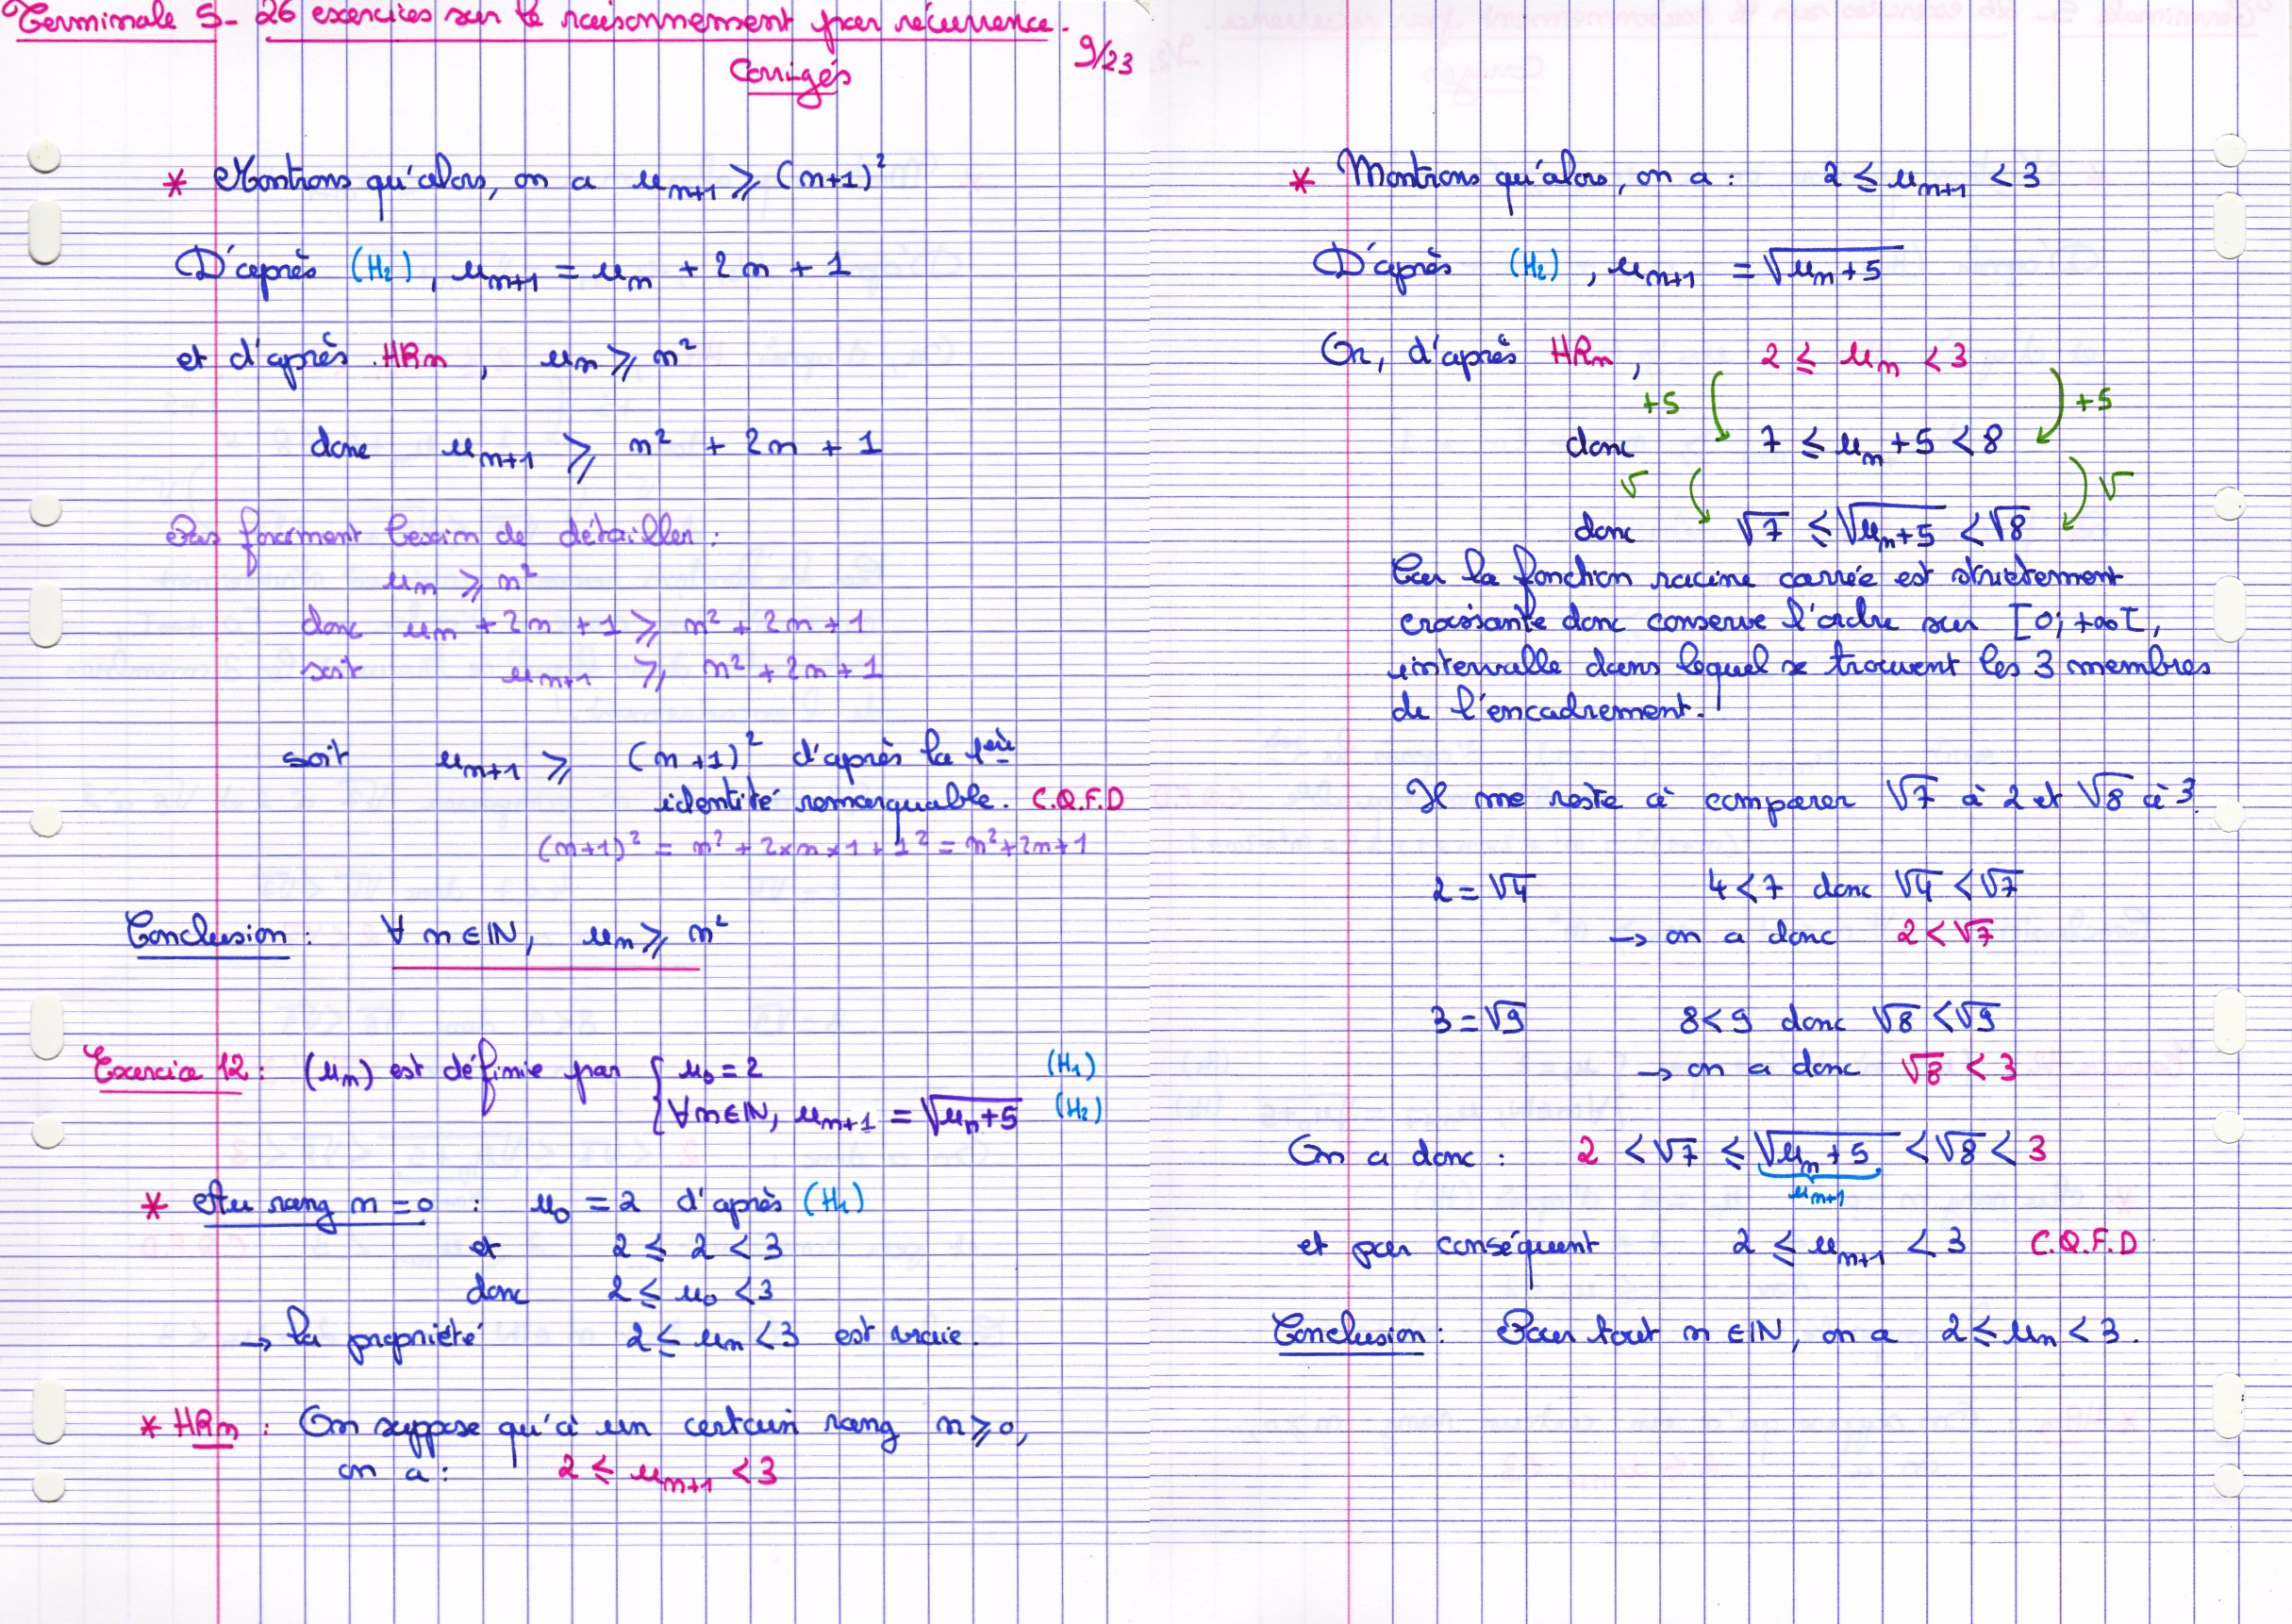 Terminale S - 26 exercices sur le raisonnement par récurrence.
Corrigés
9/23
* Montrons qu'alors, on a u_{n+1} ⩾ (n+1)²
D'après (H₂), u_{n+1} = u_n + 2n + 1
et d'après HRn, u_n ⩾ n²
donc u_{n+1} ⩾ n² + 2n + 1
Pas forcément besoin de détailler :
u_n ⩾ n²
donc u_n + 2n + 1 ⩾ n² + 2n + 1
soit u_{n+1} ⩾ n² + 2n + 1
soit u_{n+1} ⩾ (n+1)² d'après la 1ère
identité remarquable. C.Q.F.D
(n+1)² = n² + 2×n×1 + 1² = n²+2n+1
Conclusion : ∀ n ∈ IN, u_n ⩾ n²
Exercice 12 : (u_n) est définie par { u_0 = 2 (H₁)
∀n∈IN, u_{n+1} = √(u_n+5) (H₂)
* Au rang n = 0 : u_0 = 2 d'après (H₁)
et 2 ⩽ 2 < 3
donc 2 ⩽ u_0 < 3
→ la propriété 2 ⩽ u_n < 3 est vraie.
* HRn : On suppose qu'à un certain rang n ⩾ 0,
on a : 2 ⩽ u_{n+1} < 3
* Montrons qu'alors, on a : 2 ⩽ u_{n+1} < 3
D'après (H₂), u_{n+1} = √(u_n+5)
Or, d'après HRn, 2 ⩽ u_n < 3
+5 +5
donc 7 ⩽ u_n + 5 < 8
√ √
donc √7 ⩽ √(u_n+5) < √8
Car la fonction racine carrée est strictement
croissante donc conserve l'ordre sur [0; +∞[,
intervalle dans lequel se trouvent les 3 membres
de l'encadrement.
Il me reste à comparer √7 à 2 et √8 à 3.
2 = √4 4 < 7 donc √4 < √7
→ on a donc 2 < √7
3 = √9 8 < 9 donc √8 < √9
→ on a donc √8 < 3
On a donc : 2 < √7 ⩽ √(u_n+5) < √8 < 3
u_{n+1}
et par conséquent 2 ⩽ u_{n+1} < 3 C.Q.F.D
Conclusion : Pour tout n ∈ IN, on a 2 ⩽ u_n < 3.